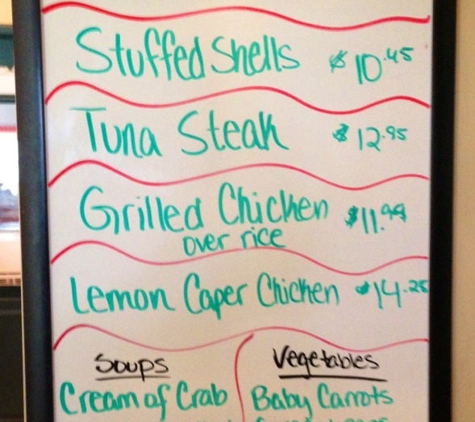 Stuffed Shells $10.45
Tuna Steak $12.95
Grilled Chicken $11.99
over rice
Lemon Caper Chicken $14.25
Soups Vegetables
Cream of Crab Baby Carrots